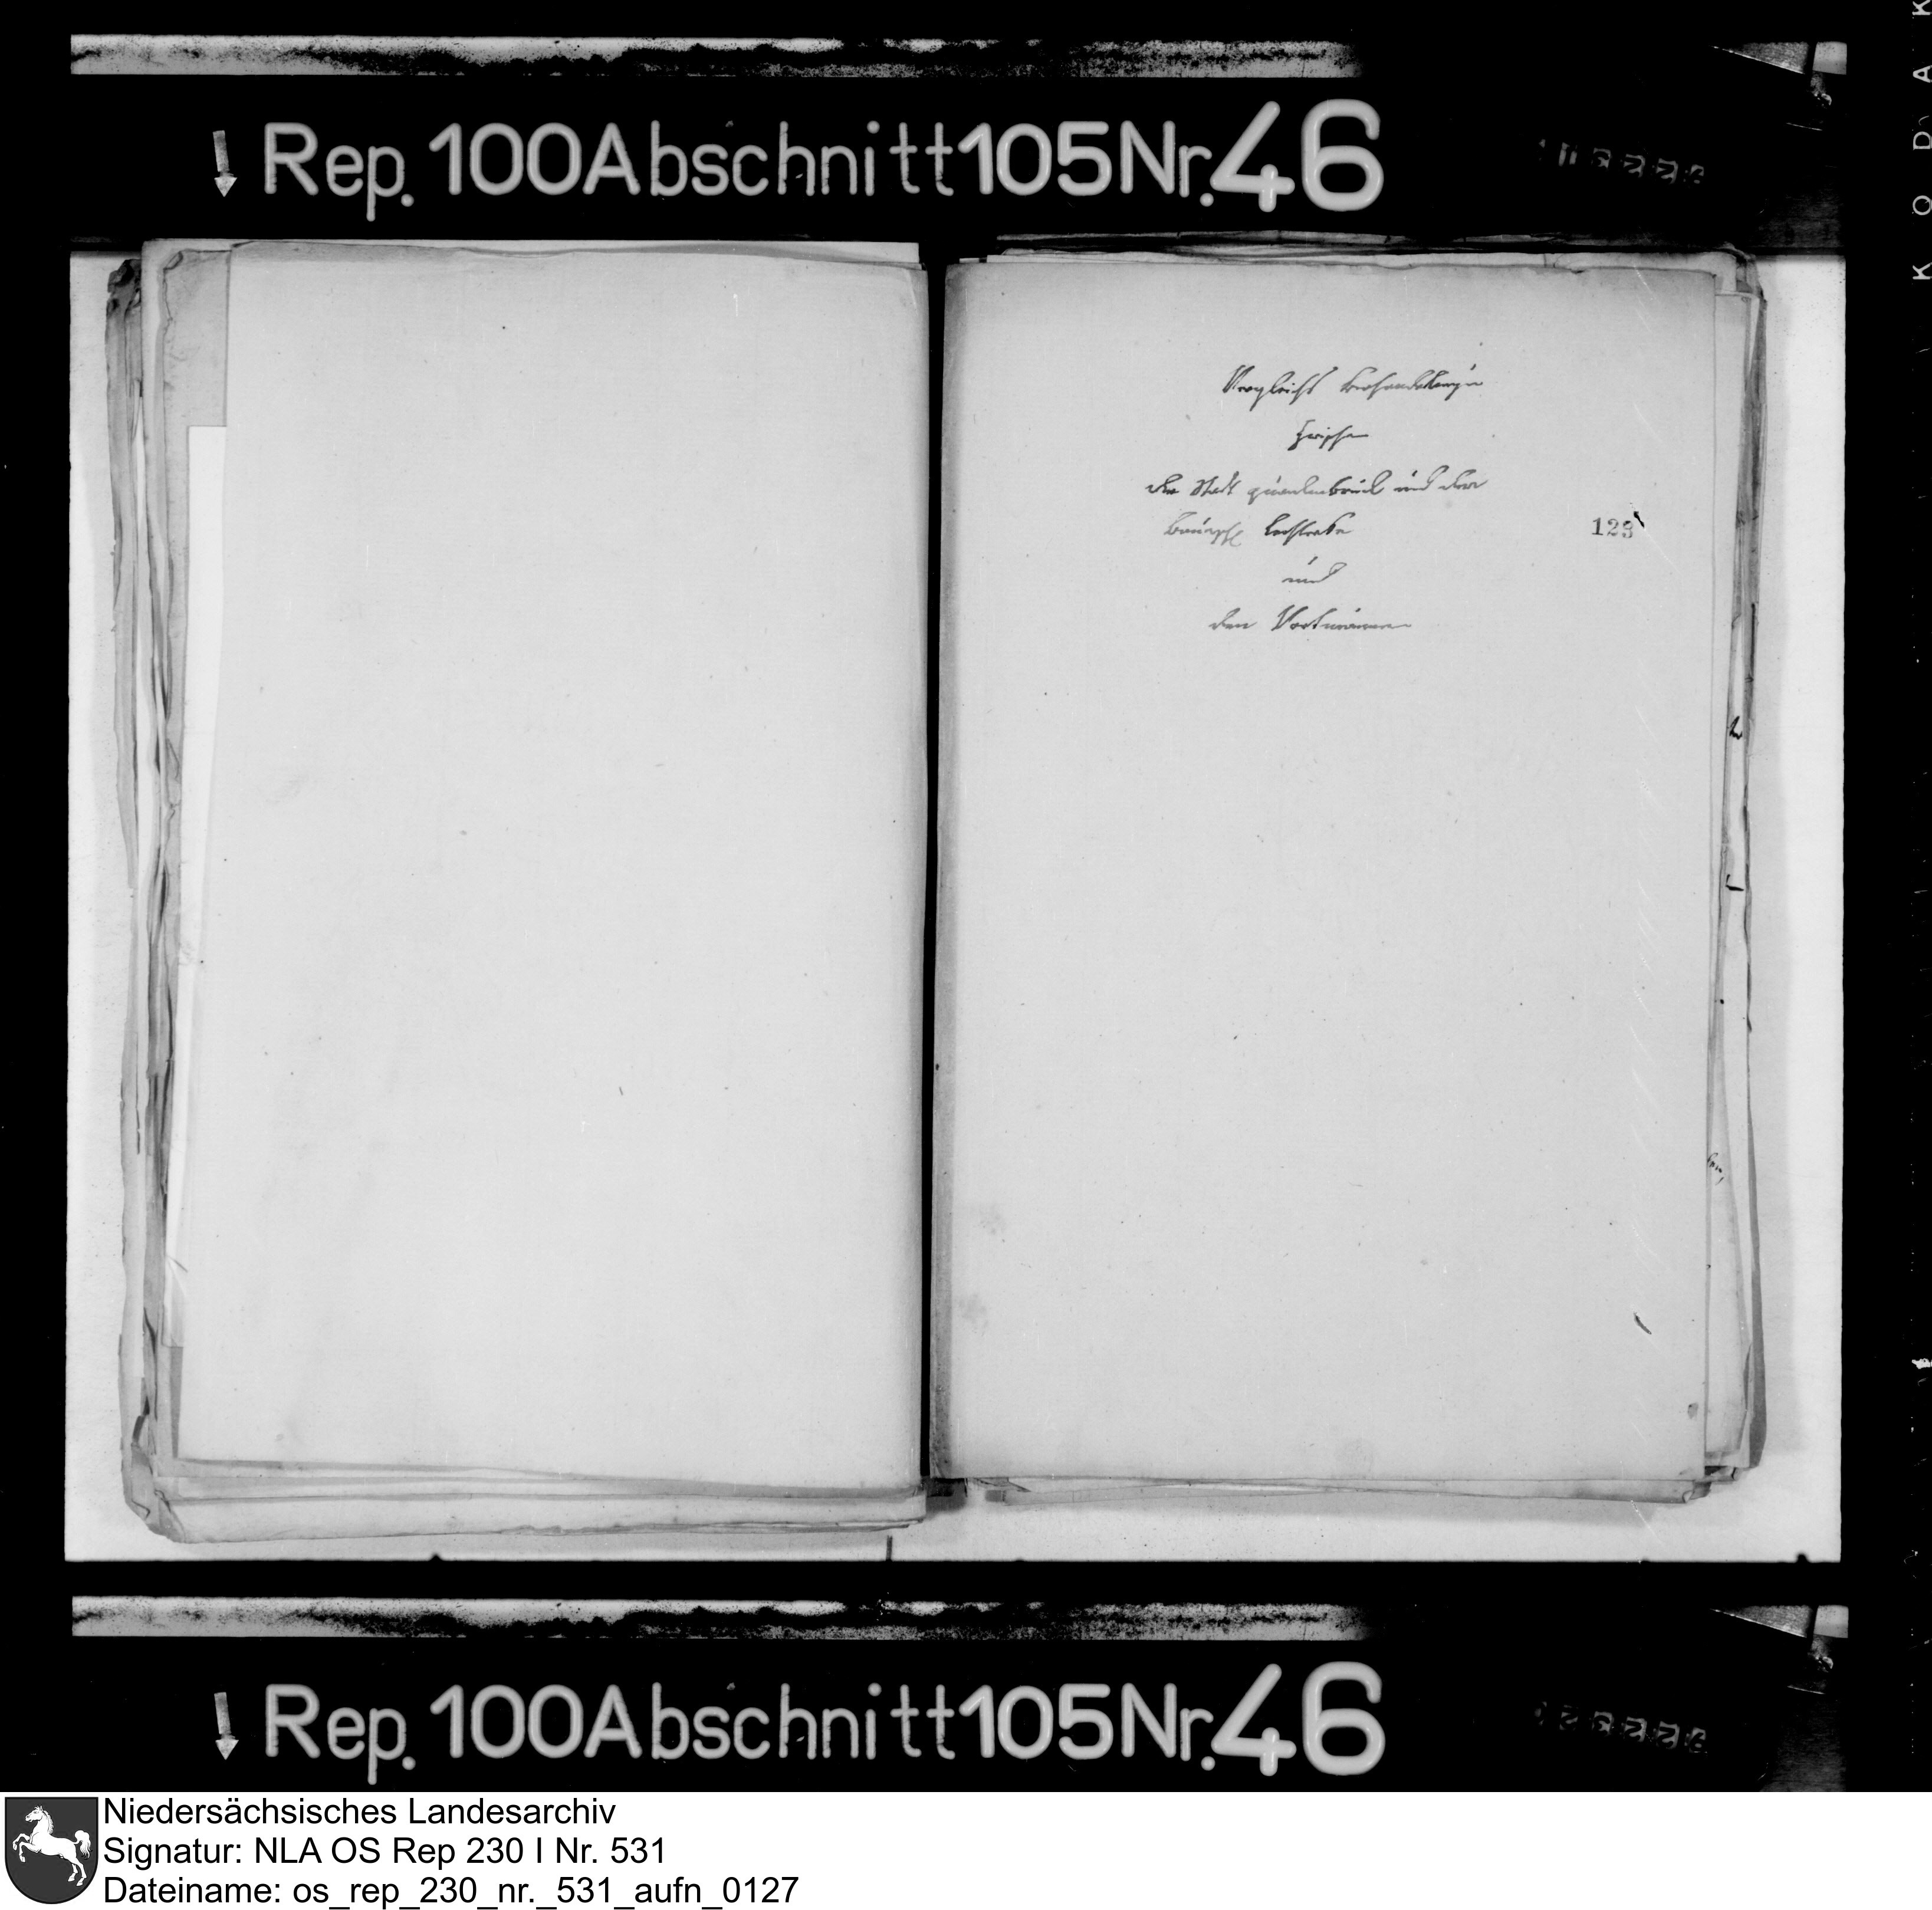 Rep. 100 Abschnitt 105 Nr. 46
Vergleichs Verhandlungen
zwischen
der Stadt Quakenbrück und der
123
und
den
Rep. 100 Abschnitt 105 Nr. 46
KODAK
Niedersächsisches Landesarchiv
Signatur: NLA OS Rep 230 I Nr. 531
Dateiname: os_rep_230_nr._531_aufn_0127